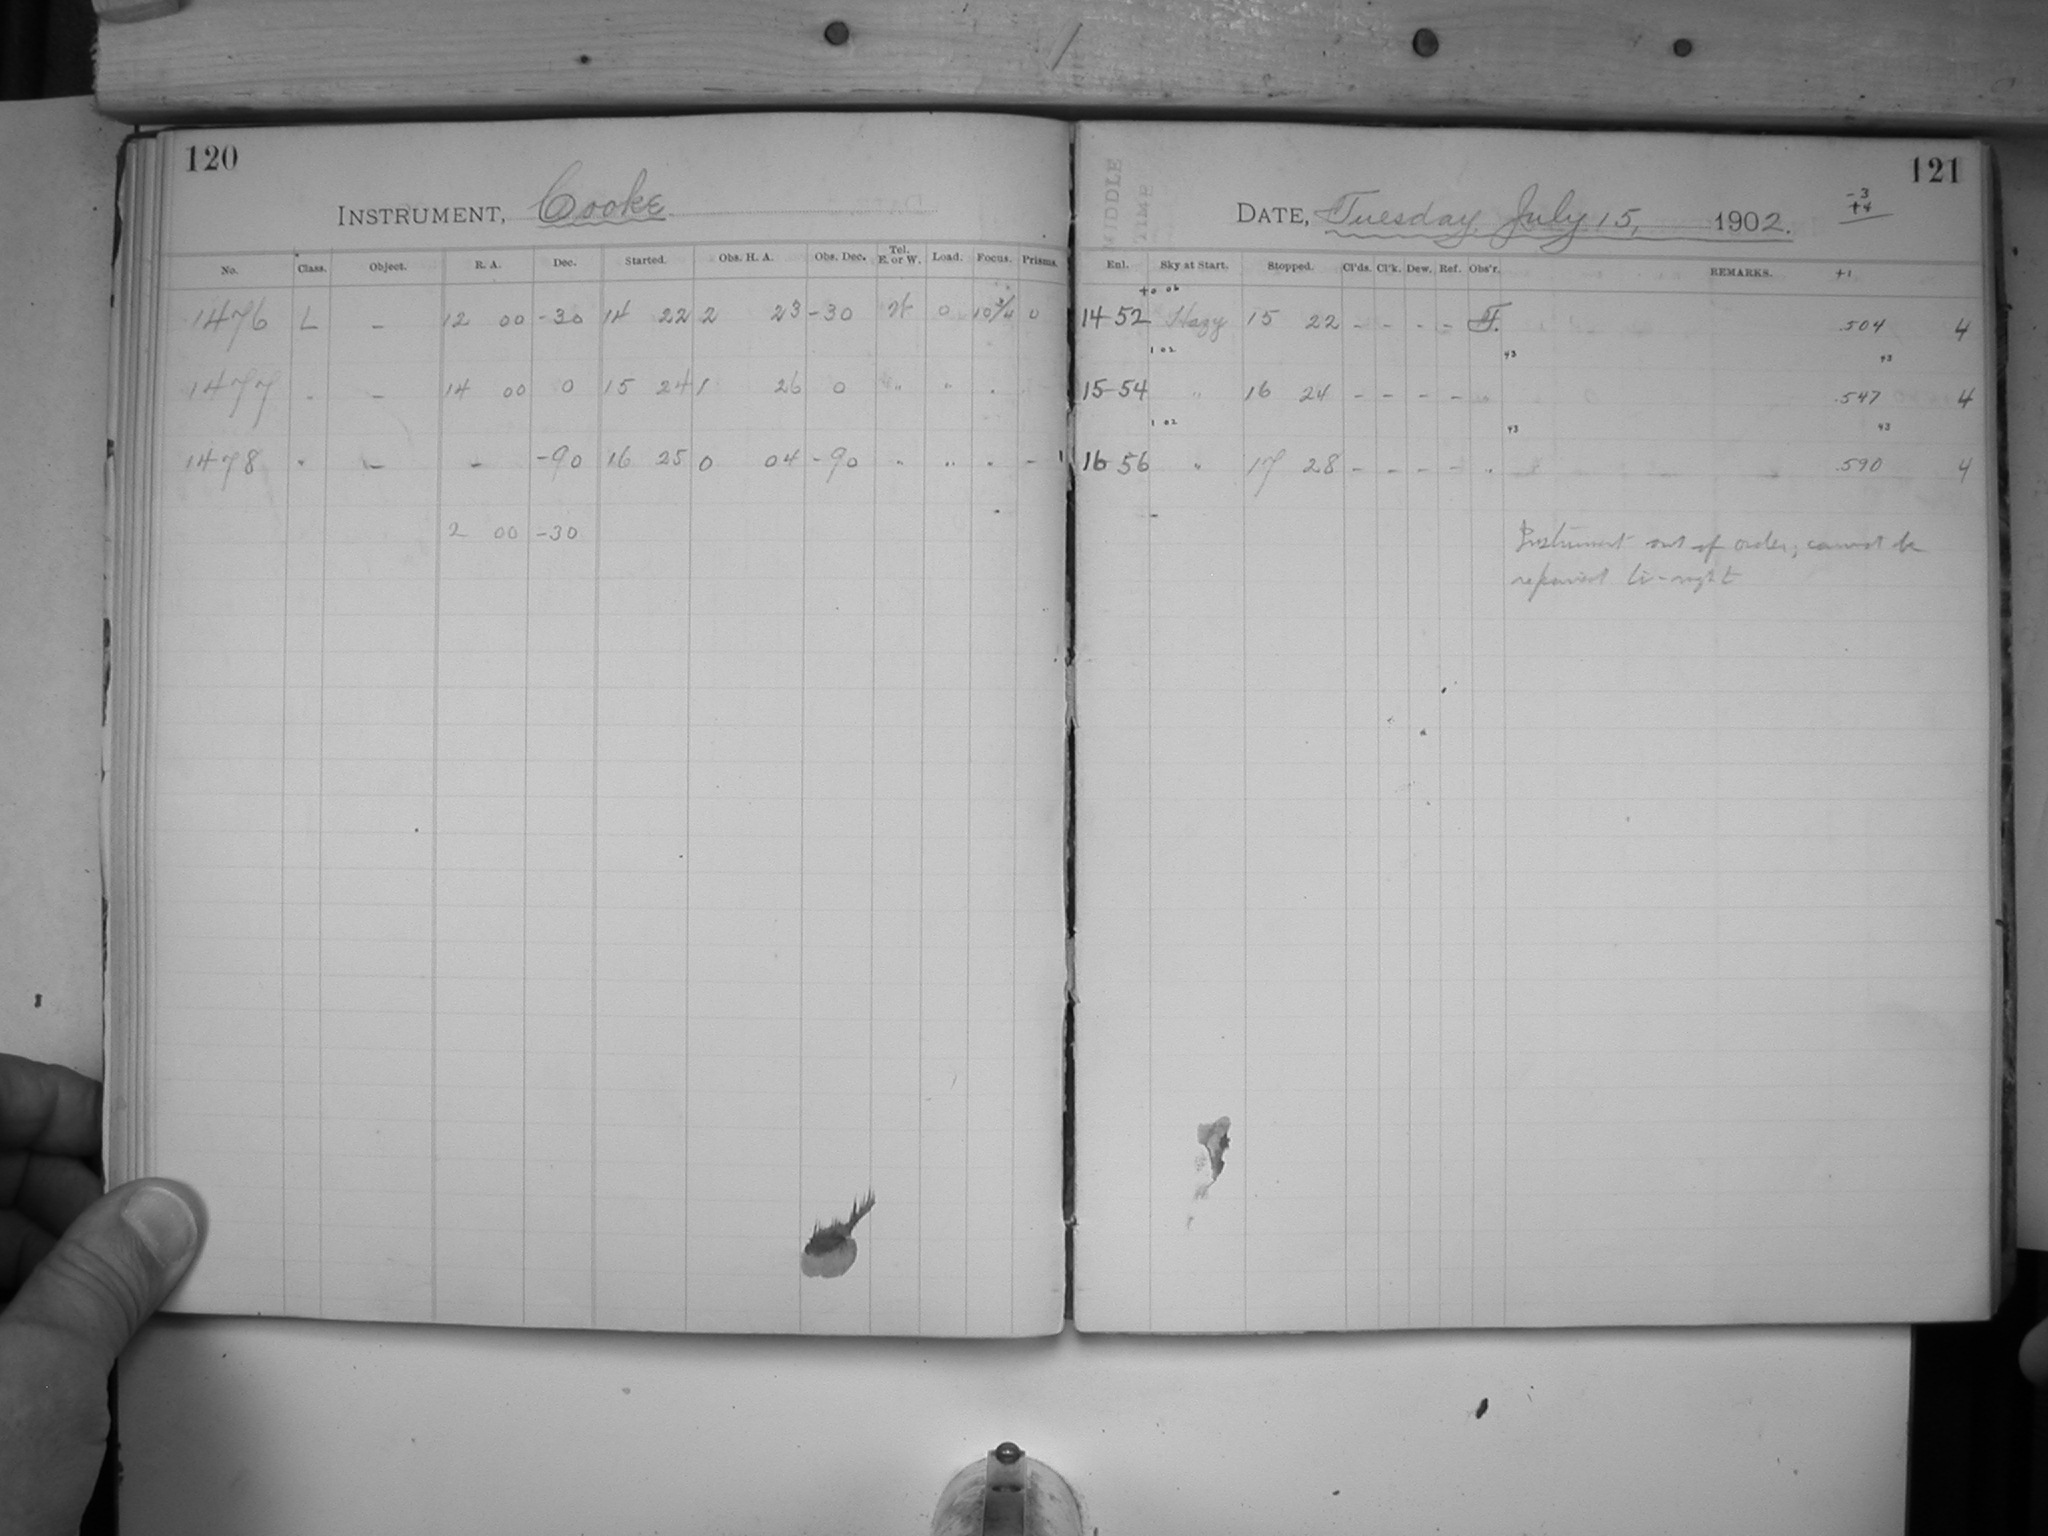 120
INSTRUMENT, Cooke
No. Class. Object. R. A. Dec. Started. Obs. H. A. Obs. Dec. Tel. E. or W. Load. Focus. Prisms.
1476 L - 12 00 -30 14 22 2 23 -30 W 0 10 3/4 0
1477 " - 14 00 0 15 24 1 26 0 " " "
1478 " - - -90 16 25 0 04 -90 " " " -
2 00 -30
121
MIDDLE
TIME
DATE, Tuesday, July 15, 1902.
-3
+4
Enl. Sky at Start. Stopped. Cl'ds. Cl'k. Dew. Ref. Obs'r. REMARKS. +1
+0 06
14 52 Hazy 15 22 - - - - .504 4
1 02 43 43
15 54 " 16 24 - - - - " .547 4
1 02 43 43
16 56 " 17 28 - - - - " .590 4
Instrument out of order; cannot be
repaired to-night